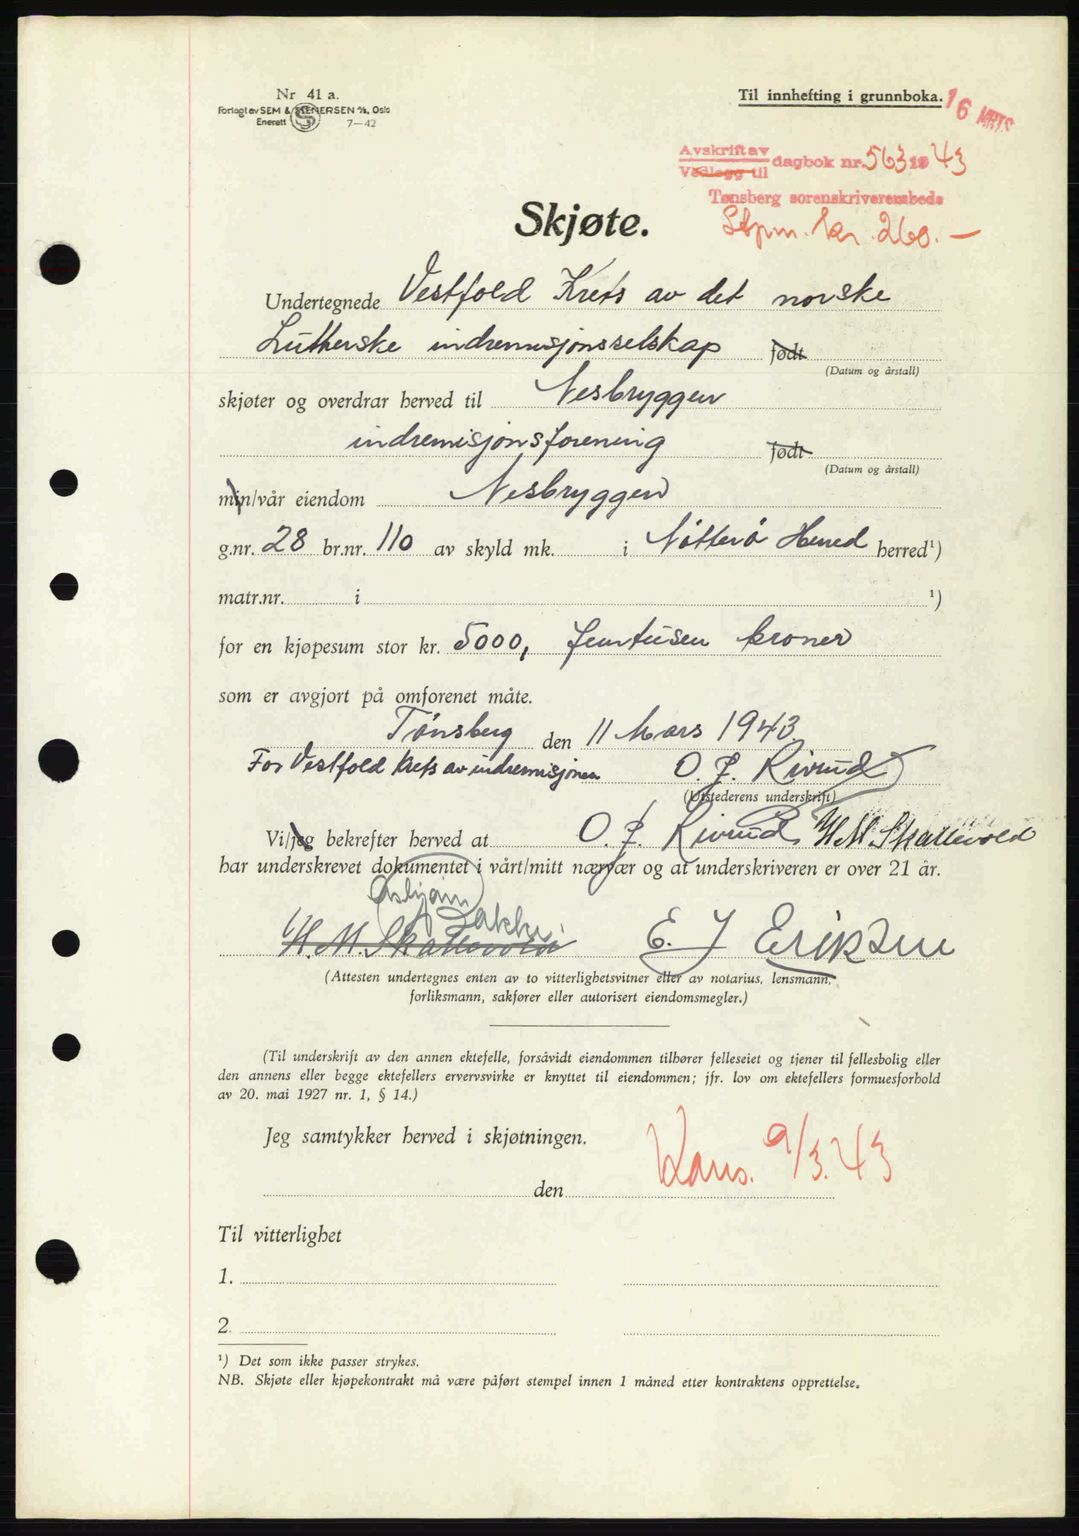 Nr 41 a.
Forlagt av SEM & STENERSEN A/S, Oslo
Enerett 7—42
Til innhefting i grunnboka.
16 MRTS
Avskrift av
Vedlegg til
dagbok nr. 563 1943
Tønsberg sorenskriverembede
Stpm. kr. 260.—
Skjøte.
Undertegnede Vestfold Krets av det norske
Lutherske indremisjonsselskap født
(Datum og årstall)
skjøter og overdrar herved til Nesbryggen
indremisjonsforening født
(Datum og årstall)
min/vår eiendom Nesbryggen
g.nr. 28 br.nr. 110 av skyld mk. i Nøtterø Herred herred¹)
matr.nr. i ¹)
for en kjøpesum stor kr. 5000, femtusen kroner
som er avgjort på omforenet måte.
Tønsberg den 11 Mars 1943.
For Vestfold krets av indremisjonen O. J. Rivrud
(Utstederens underskrift)
Vi/jeg bekrefter herved at O. J. Rivrud H. M. Skallevold
har underskrevet dokumentet i vårt/mitt nærvær og at underskriveren er over 21 år.
Asbjørn Bakke
H. M. Skallevold E. J Eriksen
(Attesten undertegnes enten av to vitterlighetsvitner eller av notarius, lensmann,
forliksmann, sakfører eller autorisert eiendomsmegler.)
(Til underskrift av den annen ektefelle, forsåvidt eiendommen tilhører felleseiet og tjener til fellesbolig eller
den annens eller begge ektefellers ervervsvirke er knyttet til eiendommen; jfr. lov om ektefellers formuesforhold
av 20. mai 1927 nr. 1, § 14.)
Jeg samtykker herved i skjøtningen.
Kons. 9/3.43
den
Til vitterlighet
1.
2.
¹) Det som ikke passer strykes.
NB. Skjøte eller kjøpekontrakt må være påført stempel innen 1 måned etter kontraktens opprettelse.